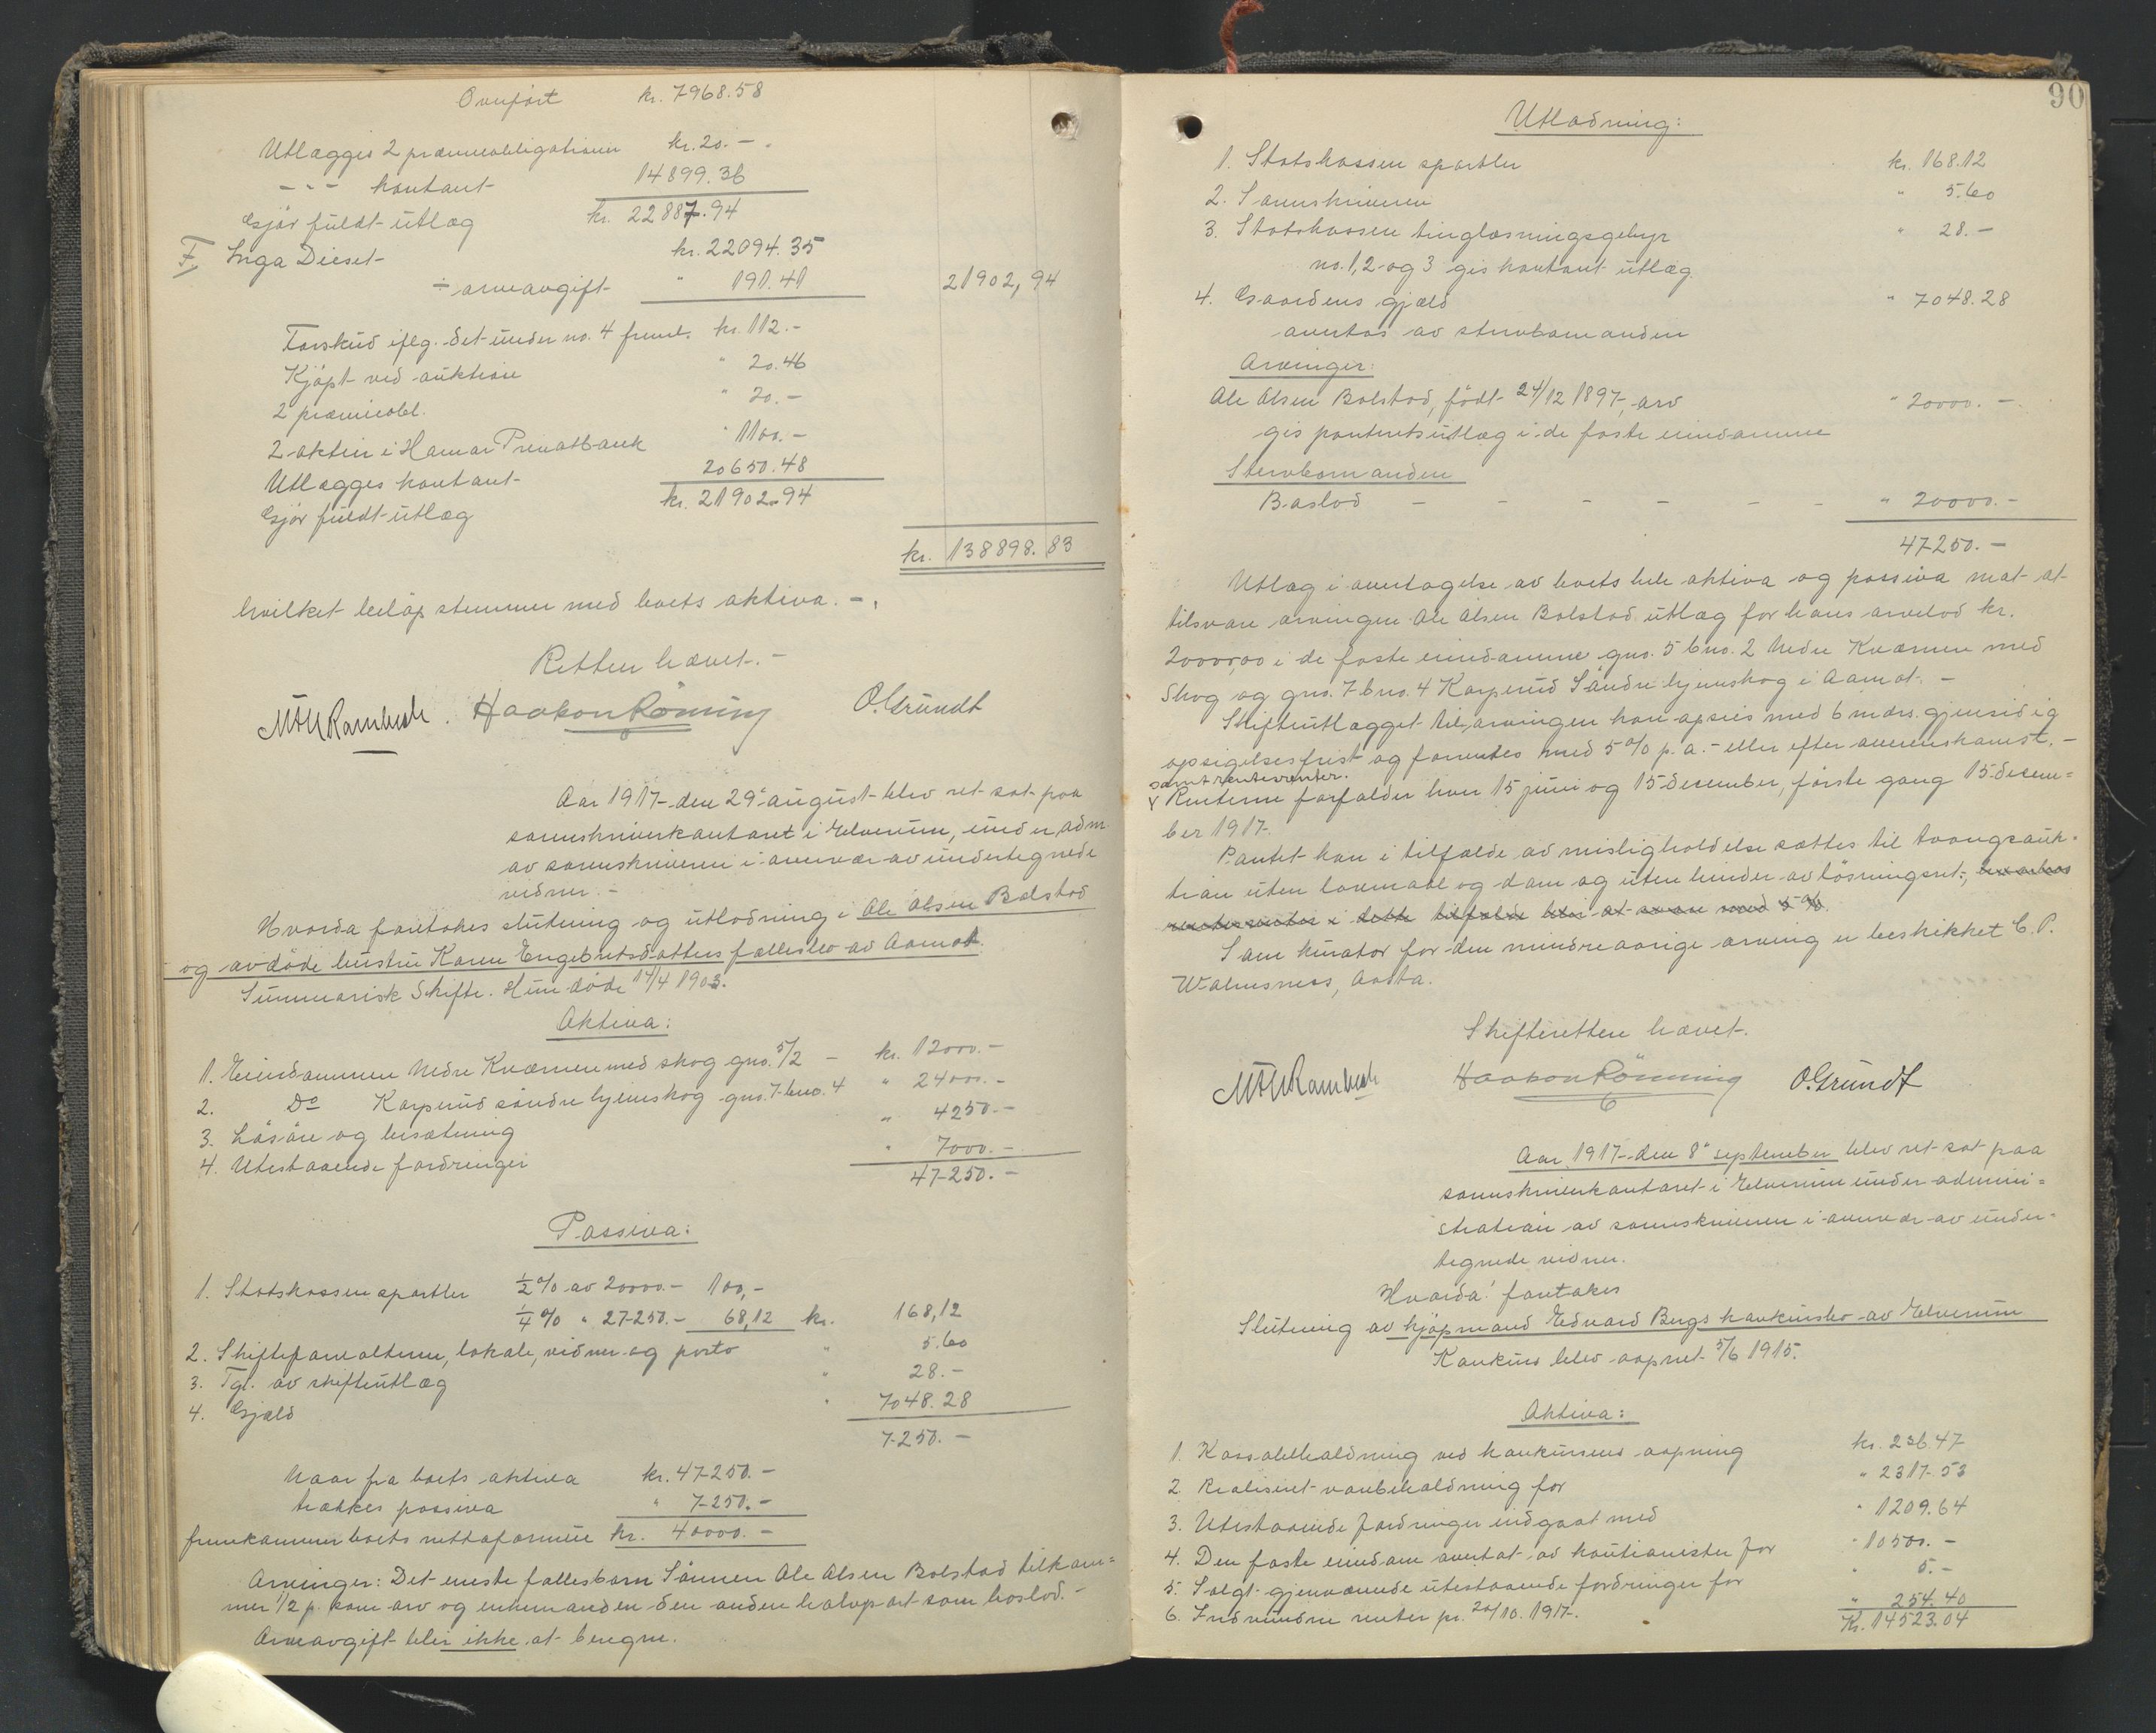 Overført kr. 7968.58
Utlægges 2 præmieobligationer kr. 20.-
-"- kontant 14899.36
Gjør fuldt utlæg kr. 22887.94
F, Inga Dieset kr. 22094.35
÷ arveavgift " 191.41 21902,94
Forskud iflg. det under no. 4 freml. kr. 112.-
Kjøpt ved auktion " 20.46
2 præmieobl. " 20.-
2 aktier i Hamar Privatbank " 1100.-
Utlægges kontant 20650.48
Gjør fuldt utlæg kr. 21902.94
kr. 138898.83
hvilket beløp stemmer med boets aktiva. -
Retten hævet. -
Haakon Rönning O. Grundt
Aar 1917 den 29' august blev ret sat paa
sorenskriverkontoret i Elverum, under adm.
av sorenskriveren i overvær av undertegnede
vidner. -
Hvorda foretokes slutning og utlodning i Ole Olsen Bolstad
og avdøde hustru Karen Engebretsdatters fællesbo av Aamot.
Summarisk Skifte. Hun døde 14/4 1903.
Aktiva:
1. Eiendommen Nedre Kværnen med skog gno. 5/2 - kr. 12000.-
2. Do Korperud søndre hjemskog gno. 7 bno. 4 " 24000.-
3. Løsøre og besætning " 4250.-
4. Utestaaende fordringer " 7000.-
47250.-
Passiva:
1. Statskassen sportler 1/2 % av 20000.- 100,-
1/4 % " 27250.- 68,12 kr. 168,12
2. Skifteforvalteren, lokale, vidner og porto " 5.60
3. Tgl. av skifteutlæg " 28.-
4. Gjæld " 7048.28
7250.-
Naar fra boets aktiva kr. 47250.-
trækkes passiva " 7250.-
fremkommer boets nettoformue kr. 40000.-
Arvinger: Det eneste fællesbarn Sønnen Ole Olsen Bolstad tilkom=
mer 1/2 p. som arv og enkemanden den anden halvpart som boslod.-
Arveavgift blir ikke at beregne.
90
Utlodning:
1. Statskassen sportler kr. 168.12
2. Sorenskriveren " 5.60
3. Statskassen tinglæsningsgebyr " 28.-
no. 1, 2 og 3 gis kontant utlæg
4. Gaardens gjæld " 7048.28
overtas av stervbomanden
Arvinger:
Ole Olsen Bolstad, født 24/12 1897, arv " 20000.-
gis panteretsutlæg i de faste eiendomme
Stervbomanden
Boslod - - - - - - " 20000.-
47250.-
Utlæg i overtagelse av boets hele aktiva og passiva mot at
tilsvare arvingen Ole Olsen Bolstad utlæg for hans arvelod kr.
20000,00 i de faste eiendomme gno. 5 bno. 2 Nedre Kværnen med
Skog og gno. 7 bno. 4 Korperud Søndre hjemskog i Aamot. -
Skifteutlægget til arvingen kan opsies med 6 mdrs. gjensidig
opsigelsesfrist og forrentes med 5 % p. a. - eller efter overenskomst. -
samt renters renter.
Renterne forfalder hver 15 juni og 15 december, første gang 15 decem=
ber 1917.
Pantet kan i tilfælde av misligholdelse sættes til tvangsauk-
tion uten lovmaal og dom og uten hinder av løsningsret,
renters renter i dette tilfælde blir at svare med 5 %.
Som kurator for den mindreaarige arving er beskikket C. P.
Walmsness, Aasta.
Skifteretten hævet.
Haakon Rönning O. Grundt
Aar 1917 den 8' september blev ret sat paa
sorenskriverkontoret i Elverum under admini=
stration av sorenskriveren i overvær av under=
tegnede vidner.
Hvorda! foretokes
Slutning av kjøpmand Edvard Bergs konkursbo av Elverum
Konkurs blev aapnet 5/6 1915.
Aktiva:
1. Kassabeholdning ved konkursens aapning kr. 236.47
2. Realiseret varebeholdning for " 2317.53
3. Utestaaende fordringer indgaat med " 1209.64
4. Den faste eiendom overtat av kautionister for " 10500.-
5. Solgt gjenværende utestaaende fordringer for " 5.-
6. Indvundne renter pr. 20/10. 1917. " 254.40
Kr. 14523.04